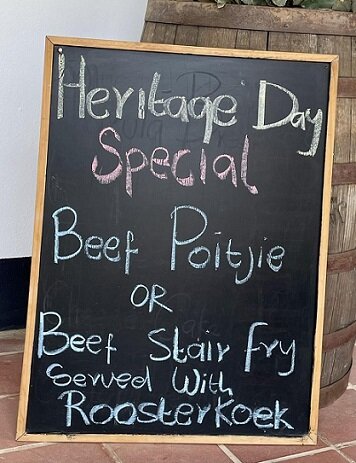 Heritage Day
Special
Beef Poitjie
OR
Beef Stair fry
Served With
Roosterkoek